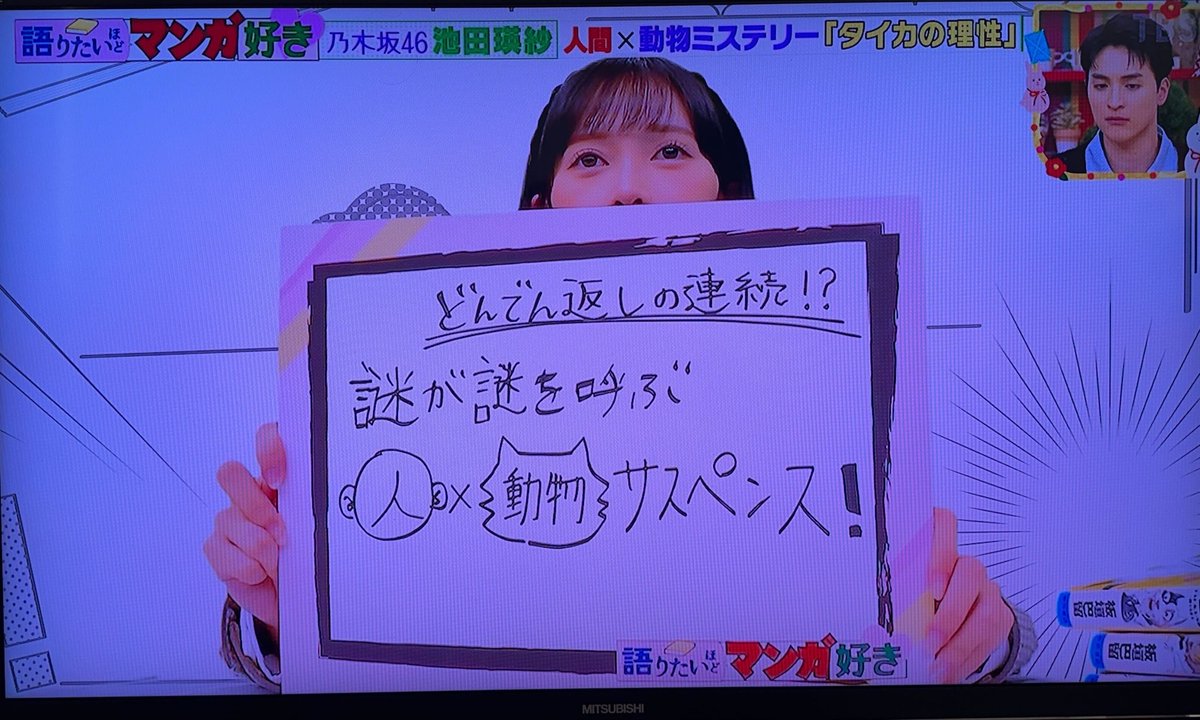 語りたいほど
マンガ好き
乃木坂46 池田瑛紗
人間×動物ミステリー「タイカの理性」
TBS
どんでん返しの連続!?
謎が謎を呼ぶ
人×動物サスペンス!
語りたいほど
マンガ好き
MITSUBISHI